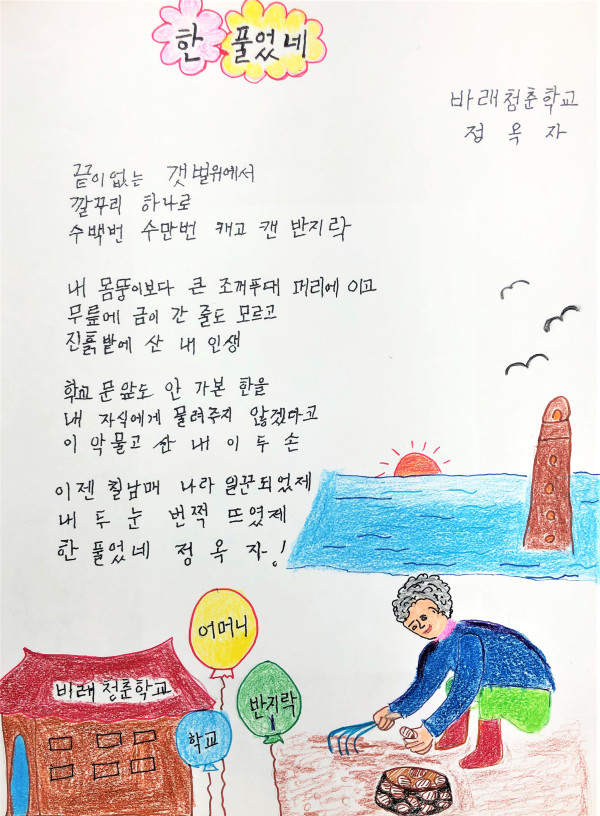 한 풀었네
바래청춘학교
정 옥 자
끝이 없는 갯벌위에서
깔꾸리 하나로
수백번 수만번 캐고 캔 반지락
내 몸뚱이보다 큰 조개푸대 머리에 이고
무릎에 금이 간 줄도 모르고
진흙밭에 산 내 인생
학교 문앞도 안 가본 한을
내 자식에게 물려주지 않겠다고
이 악물고 산 내 이 두 손
이젠 칠남매 나라 일꾼되었제
내 두 눈 번쩍 뜨였제
한 풀었네 정 옥 자!
어머니
바래청춘학교
반지락
학교